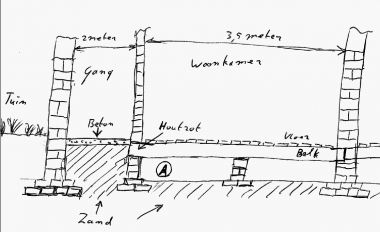 2 meter
3,5 meter
Gang
Woonkamer
Tuin
Beton
Houtrot
Vloer
Balk
A
Zand